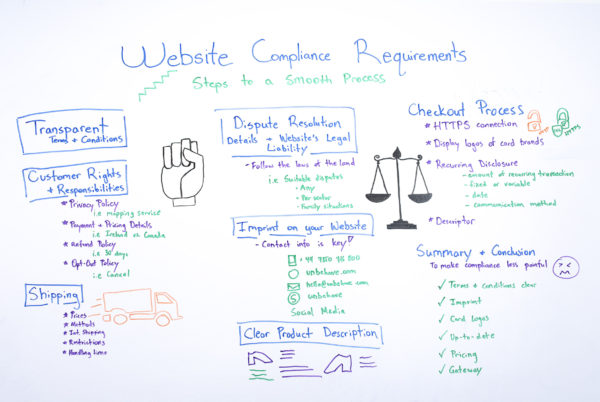 Website Compliance Requirements
Steps to a Smooth Process
Transparent
Terms + Conditions
Customer Rights
+ Responsibilities
* Privacy Policy
i.e mapping service
* Payment + Pricing Details
i.e Ireland vs Canada
* Refund Policy
i.e 30 days
* Opt-Out Policy
i.e Cancel
Shipping
* Prices
* Methods
* Int. Shipping
* Restrictions
* Handling time
Dispute Resolution
Details + Website's Legal
Liability
- Follow the laws of the land
i.e Suitable disputes
- Any
- Per sector
- Family situations
Imprint on your Website
- Contact info is key
unbehave.com
unbehave
Social Media
Clear Product Description
Checkout Process
* HTTPS connection
HTTP
HTTPS
* Display logos of card brands
* Recurring Disclosure
- amount of recurring transaction
- fixed or variable
- date
- communication method
* Descriptor
Summary + Conclusion
To make compliance less painful
✓ Terms + conditions clear
✓ Imprint
✓ Card logos
✓ Up-to-date
✓ Pricing
✓ Gateway